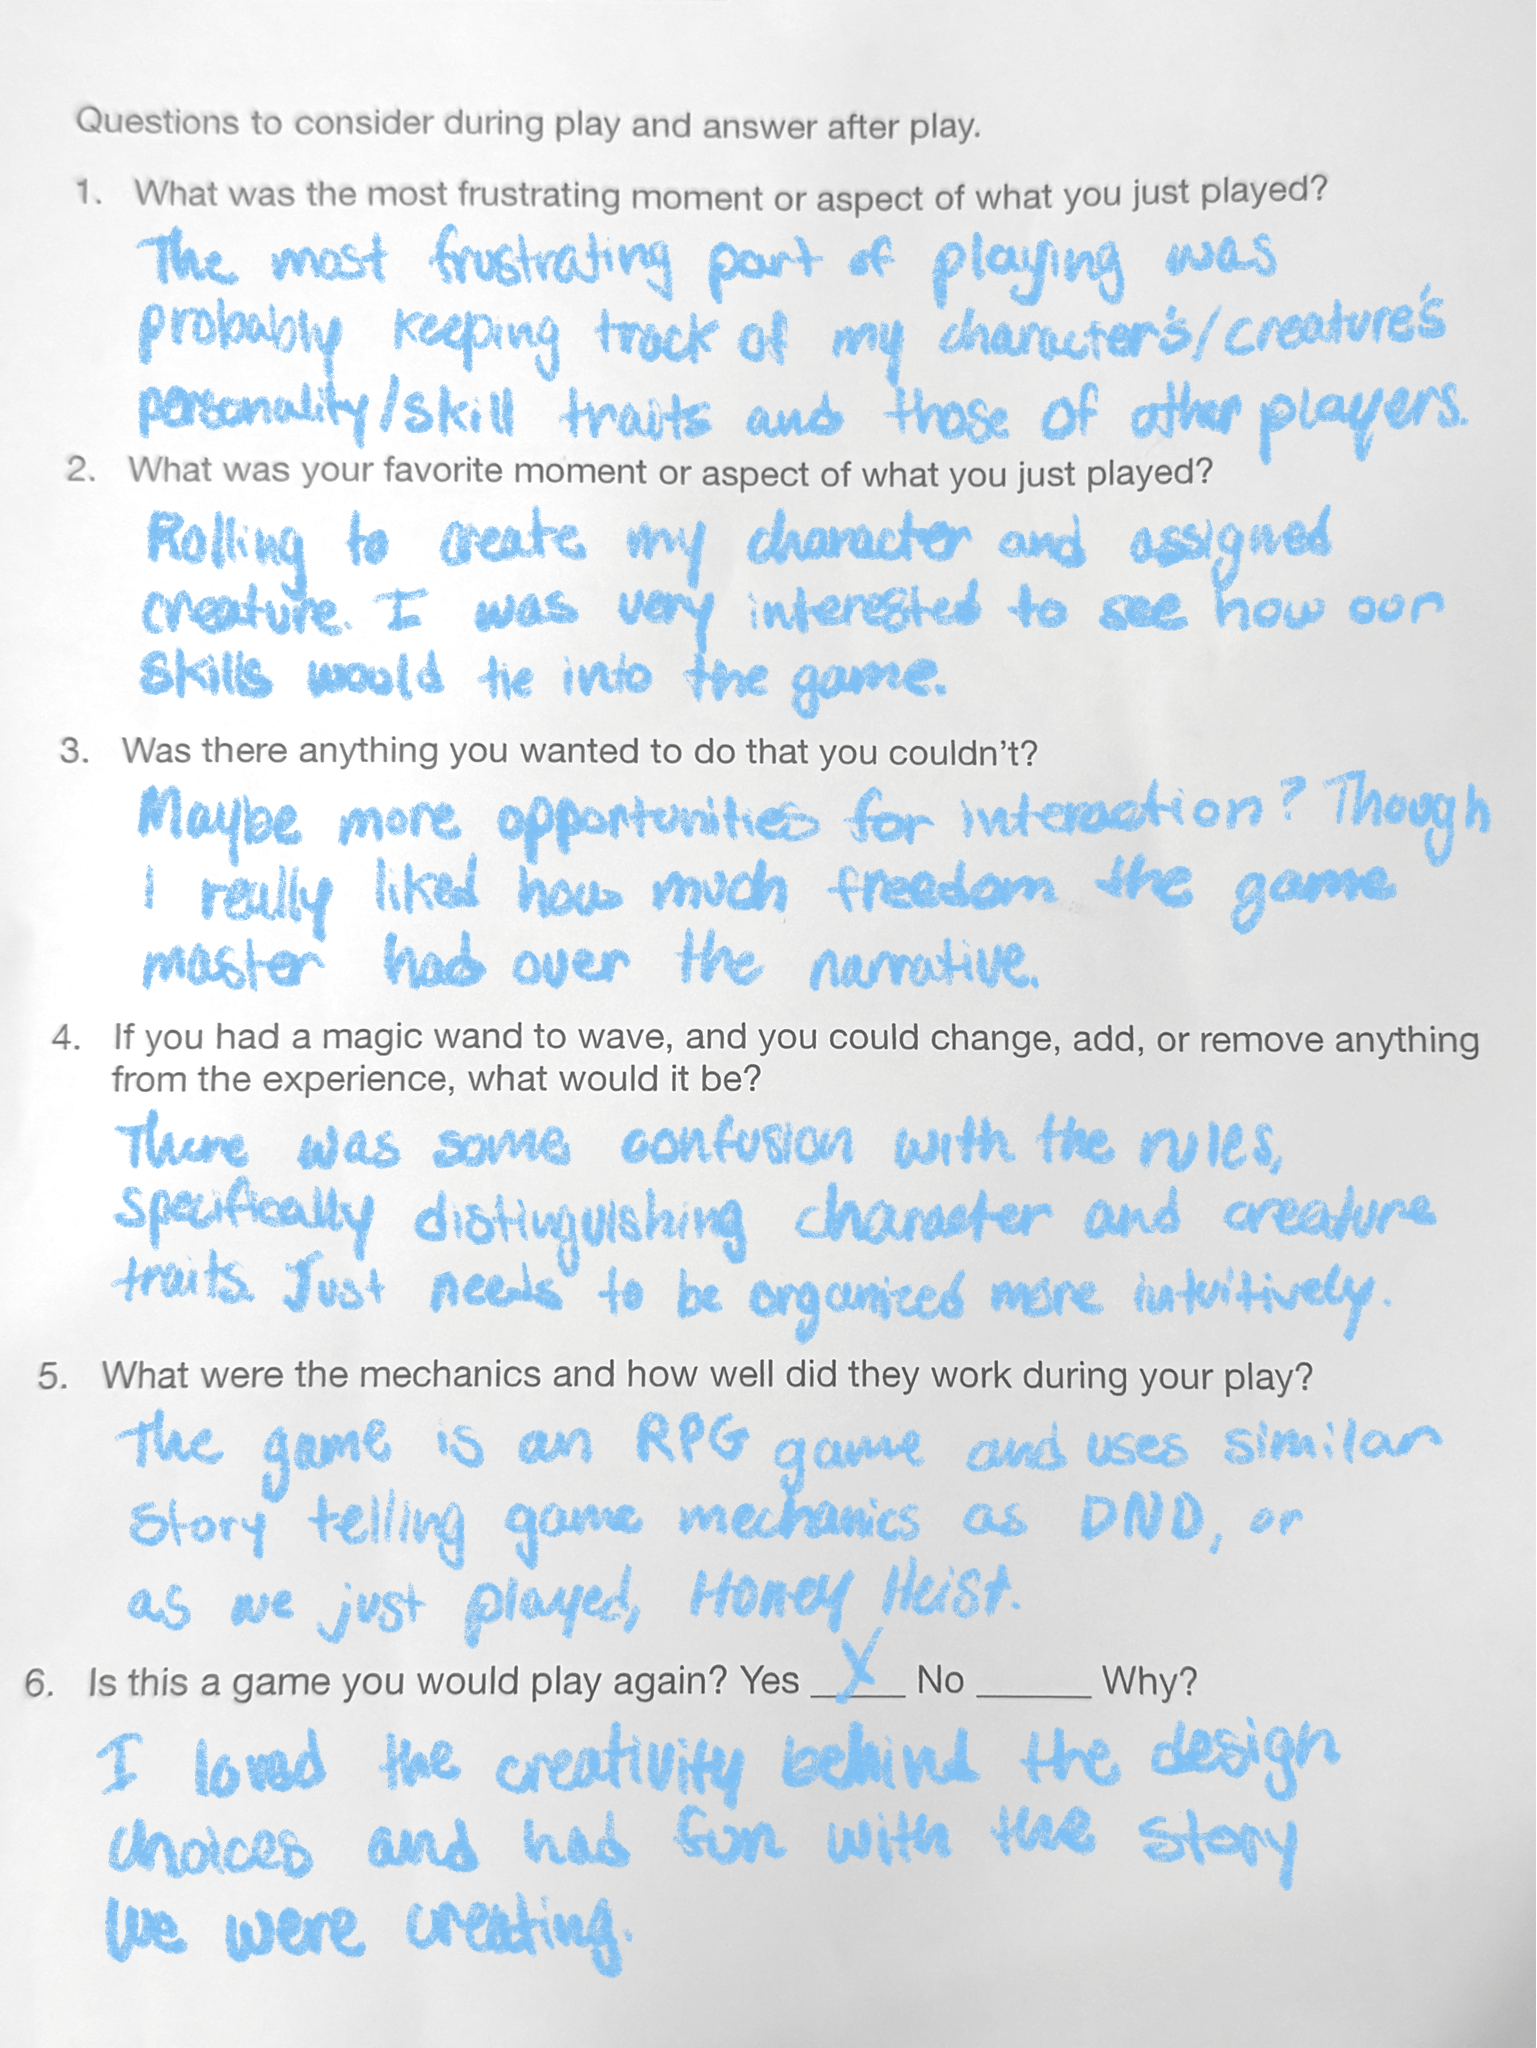 Questions to consider during play and answer after play.
1. What was the most frustrating moment or aspect of what you just played?
The most frustrating part of playing was
probably keeping track of my character's/creature's
personality/skill traits and those of other players.
2. What was your favorite moment or aspect of what you just played?
Rolling to create my character and assigned
creature. I was very interested to see how our
skills would tie into the game.
3. Was there anything you wanted to do that you couldn't?
Maybe more opportunities for interaction? Though
I really liked how much freedom the game
master had over the narrative.
4. If you had a magic wand to wave, and you could change, add, or remove anything
from the experience, what would it be?
There was some confusion with the rules,
specifically distinguishing character and creature
traits. Just needs to be organized more intuitively.
5. What were the mechanics and how well did they work during your play?
The game is an RPG game and uses similar
story telling game mechanics as DND, or
as we just played, Honey Heist.
6. Is this a game you would play again? Yes __X__ No ______ Why?
I loved the creativity behind the design
choices and had fun with the story
we were creating.